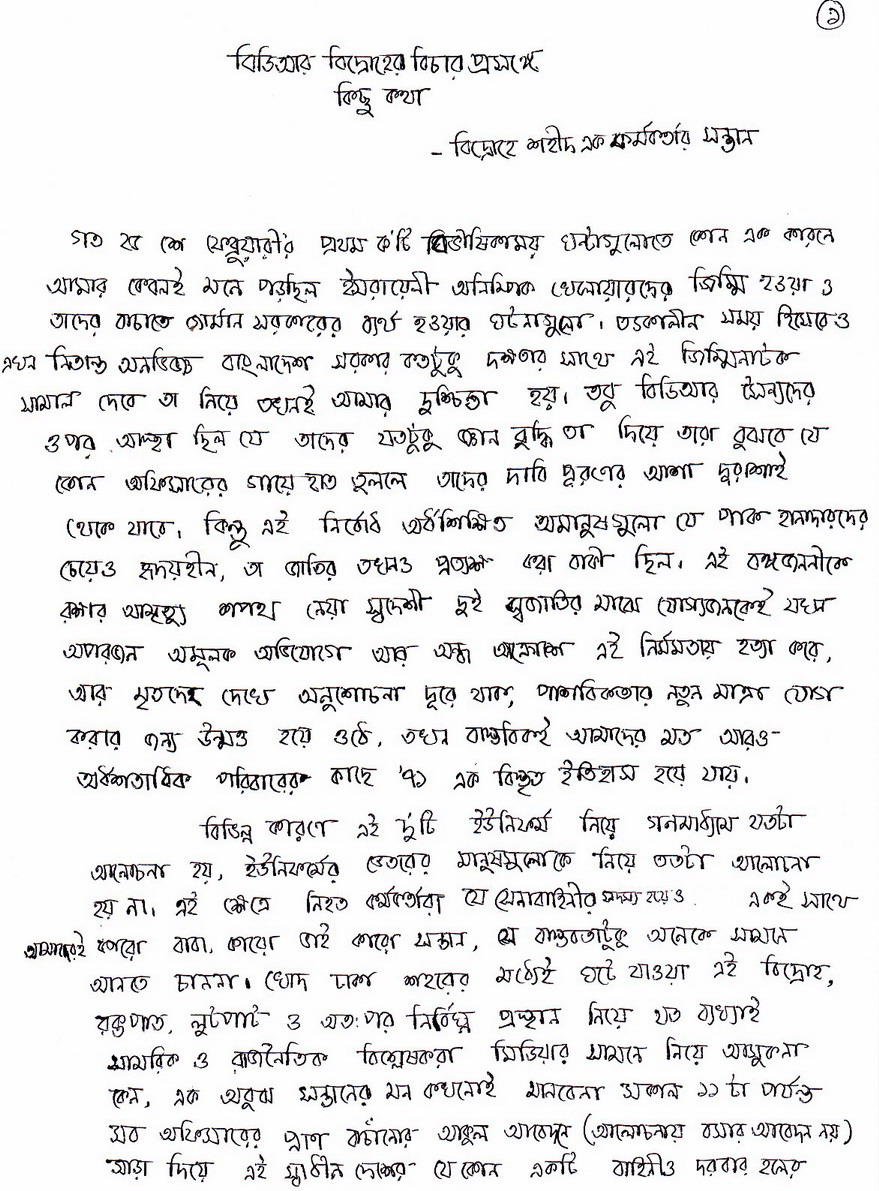 ১
বিডিআর বিদ্রোহের বিচার প্রসঙ্গে
কিছু কথা
- বিদ্রোহে শহীদ এক কর্মকর্তার সন্তান
গত ২৫ শে ফেব্রুয়ারীর প্রথম ক'টি বিভীষিকাময় ঘন্টাগুলোতে কোন এক কারনে
আমার কেবলই মনে পড়ছিল ইসরায়েলী অলিম্পিক খেলোয়ারদের জিম্মি হওয়া ও
তাদের বাচাতে জার্মান সরকারের ব্যর্থ হওয়ার ঘটনাগুলো। তৎকালীন সময় হিসেবেও
এখন নিতান্ত অনভিজ্ঞ বাংলাদেশ সরকার কতটুকু দক্ষতার সাথে এই জিম্মিনাটক
সামাল দেবে তা নিয়ে তখনই আমার দুশ্চিন্তা হয়। তবু বিডিআর সৈন্যদের
ওপর আস্থা ছিল যে তাদের যতটুকু জ্ঞান বুদ্ধি তা দিয়ে তারা বুঝবে যে
কোন অফিসারের গায়ে হাত তুললে তাদের দাবি পূরণের আশা দুরাশাই
থেকে যাবে। কিন্তু এই নির্বোধ অর্ধশিক্ষিত অমানুষগুলো যে পাক হানাদারদের
চেয়েও হৃদয়হীন, তা জাতির তখনও প্রত্যক্ষ করা বাকী ছিল। এই বঙ্গজননীকে
রক্ষার আমৃত্যু শপথ নেয়া স্বদেশী দুই স্বজাতির মাঝে যোগ্যজনকেই যখন
অপরজন অমূলক অভিযোগে আর অন্ধ আক্রোশে এই নির্মমতায় হত্যা করে,
আর মৃতদেহ দেখে অনুশোচনা দূরে থাক, পাশবিকতার নতুন মাত্রা যোগ
করার জন্য উন্মত্ত হয়ে ওঠে, তখন বাস্তবিকই আমাদের মত আরও
অর্ধশতাধিক পরিবারের কাছে '৭১ এক বিস্তৃত ইতিহাস হয়ে যায়।
বিভিন্ন কারণে এই দু'টি ইউনিফর্ম নিয়ে গনমাধ্যমে যতটা
আলোচনা হয়, ইউনিফর্মের ভেতরের মানুষগুলোকে নিয়ে ততটা আলোচনা
হয় না। এই ক্ষেত্রে নিহত কর্মকর্তারা যে সেনাবাহিনীর সদস্য হয়েও একই সাথে
আমাদেরই কারো বাবা, কারো ভাই কারো সন্তান, সে বাস্তবতাটুকু অনেকে সামনে
আনতে চাননা। খোদ ঢাকা শহরের মধ্যেই ঘটে যাওয়া এই বিদ্রোহ,
রক্তপাত, লুটপাট ও অতঃপর নির্বিঘ্ন প্রস্থান নিয়ে যত ব্যখ্যাই
সামরিক ও রাজনৈতিক বিশ্লেষকরা মিডিয়ার সামনে নিয়ে আসুকনা
কেন, এক অবুঝ সন্তানের মন কখনোই মানবেনা সকাল ১১ টা পর্যন্ত
সব অফিসারের প্রাণ বাচাঁনোর আকুল আবেদনে (আলোচনায় বসার আবেদন নয়)
সাড়া দিয়ে এই স্বাধীন দেশের যে কোন একটি বাহিনীও দরবার হলের